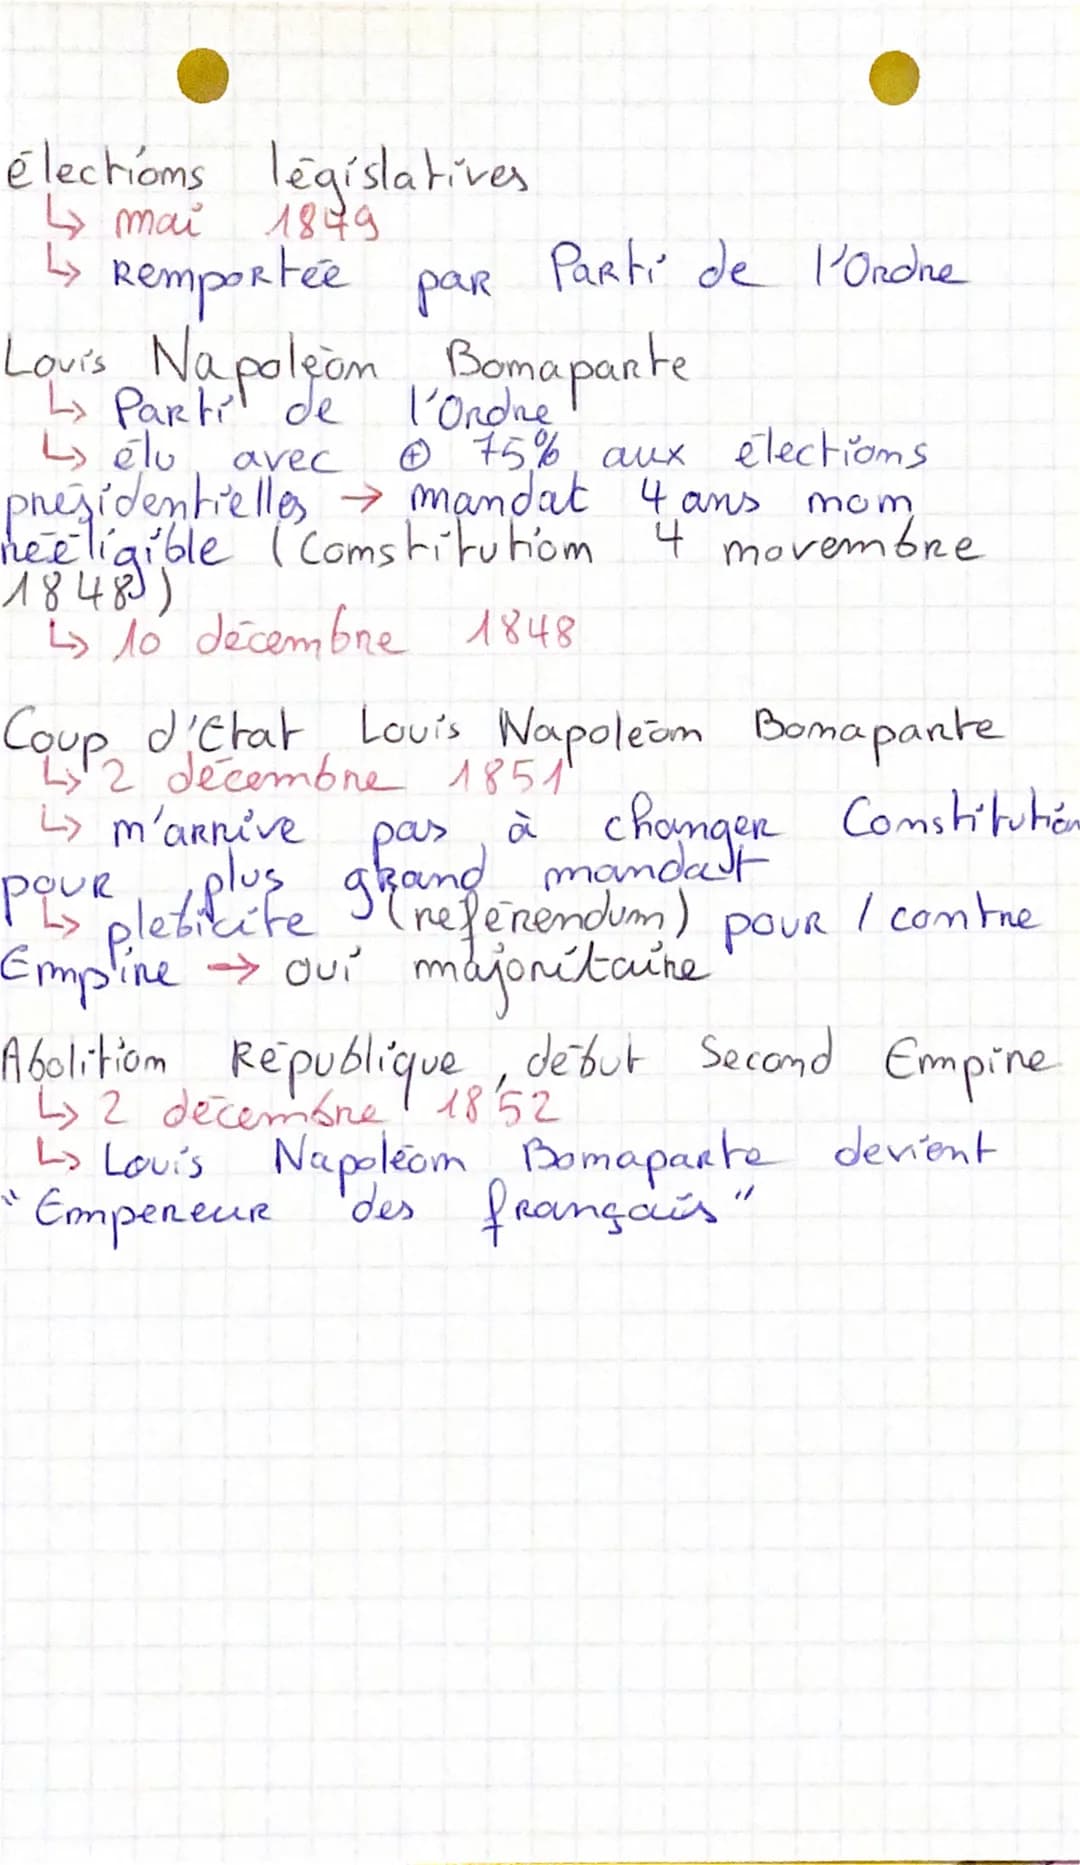 élections législatives
↳ mai 1849
↳ Remportée par Parti de l'Ordre
Louis Napoléon Bonaparte
↳ Parti de l'Ordre
↳ élu avec ⊕ 75% aux élections
présidentielles → mandat 4 ans non
rééligible (Constitution 4 novembre
1848)
↳ 10 décembre 1848
Coup d'Etat Louis Napoléon Bonaparte
↳ 2 décembre 1851
↳ n'arrive pas à changer Constitution
pour plus grand mandat
↳ plébicite (référendum) pour / contre
Empire → oui majoritaire
Abolition République, début Second Empire
↳ 2 décembre 1852
↳ Louis Napoléon Bonaparte devient
"Empereur des français"